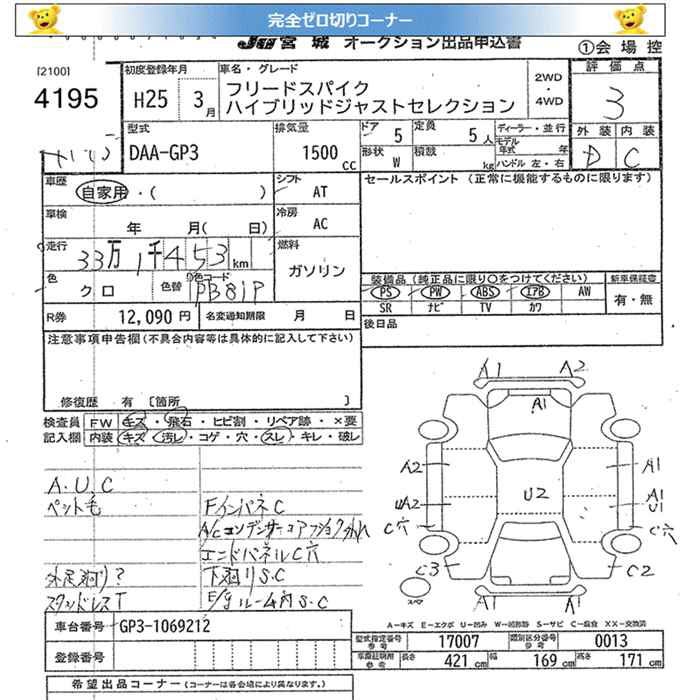 完全ゼロ切りコーナー
JU宮城 オークション出品申込書
①会場控
[2100]
4195
初度登録年月
H25 3月
車名・グレード
フリードスパイク
ハイブリッドジャストセレクション
2WD
・
4WD
評価点
3
外装 内装
D C
型式
DAA-GP3
排気量
1500 cc
ドア 5
定員 5人
形状 W
積載 kg
ディーラー・並行
モデル年式 年
ハンドル 左・右
車歴
自家用・( )
シフト
AT
セールスポイント (正常に機能するものに限ります)
車検
年 月( 日)
冷房
AC
走行
33万1千453km
燃料
ガソリン
色
クロ
色替
カラーコード
PB81P
装備品 (純正品に限り○をつけてください)
PS PW ABS エアB AW
SR ナビ TV カワ
新車保証書
有・無
R券
12,090円
名変通知期限 月 日
後日品
注意事項申告欄(不具合内容等は具体的に記入して下さい)
修復歴 有 [箇所 ]
検査員 記入欄
FW キズ・飛石・ヒビ割・リペア跡・×要
内装 キズ・汚レ・コゲ・穴・スレ・キレ・破レ
A.U.C
ペット毛
FインパネC
A/Cコンデンサーコアフショク外れ
エンドパネルC穴
下廻りS.C
スタッドレスT
E/gルーム内S.C
A1 A2
A1
A2 A1
UA2 U2 A1
U1
C穴 C穴
C3 C2
スペア
A1 A1
A-キズ E-エクボ U-凹み W-補修跡 S-サビ C-腐食 XX-交換済
車台番号
GP3-1069212
登録番号
型式指定番号 参考
17007
類別区分番号 参考
0013
車両総排用 参考
長さ 421cm
幅 169cm
高さ 171cm
希望出品コーナー (コーナーは各会場により異なります。)